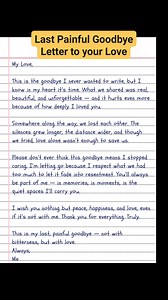 Last Painful Goodbye
Letter to your Love
My Love,
This is the goodbye I never wanted to write, but I
know in my heart it's time. What we shared was real,
beautiful, and unforgettable — and it hurts even more
because of how deeply I loved you.
Somewhere along the way, we lost each other. The
silences grew longer, the distance wider, and though
we tried, love alone wasn't enough to save us.
Please don't ever think this goodbye means I stopped
caring. I'm letting go because I respect what we had
too much to let it fade into resentment. You'll always
be part of me — in memories, in moments, in the
quiet spaces I'll carry with me.
I wish you nothing but peace, happiness, and love, even
if it's not with me. Thank you for everything. Truly.
This is my last, painful goodbye — not with
bitterness, but with love.
Always,
Me